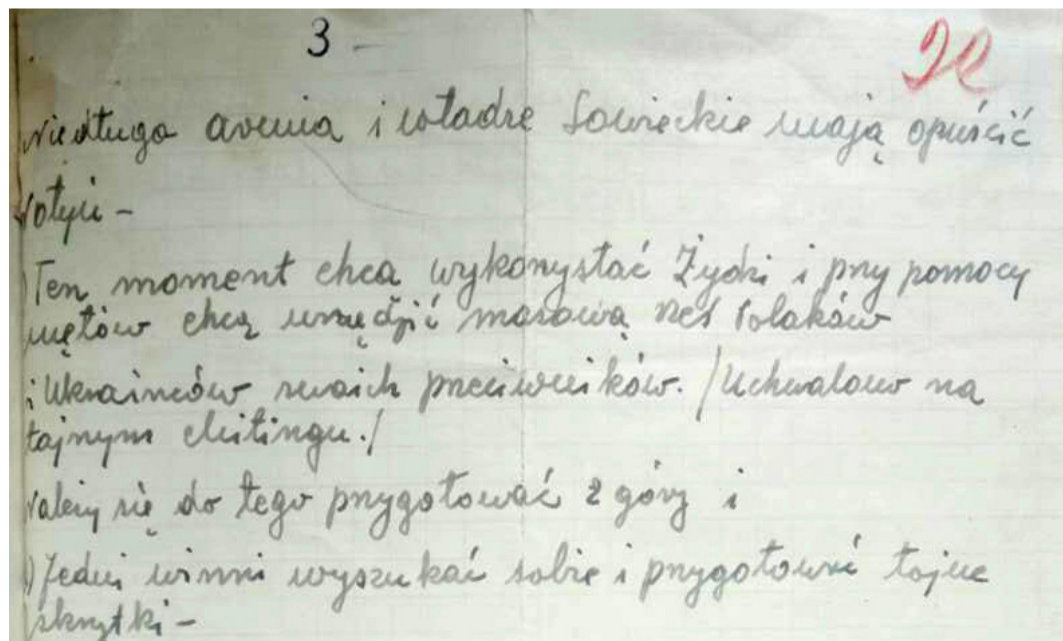 3 -
22
Niedługo armia i władze Sowieckie mają opuścić
Wołyń -
Ten moment chcą wykorzystać Żydzi i przy pomocy
mętów chcą urządzić masową rzeź Polaków
i Ukraińców swoich przeciwników. /Uchwalono na
tajnym mitingu./
Należy się do tego przygotować z góry i
) Jedni winni wyszukać sobie i przygotować tajne
skrytki -